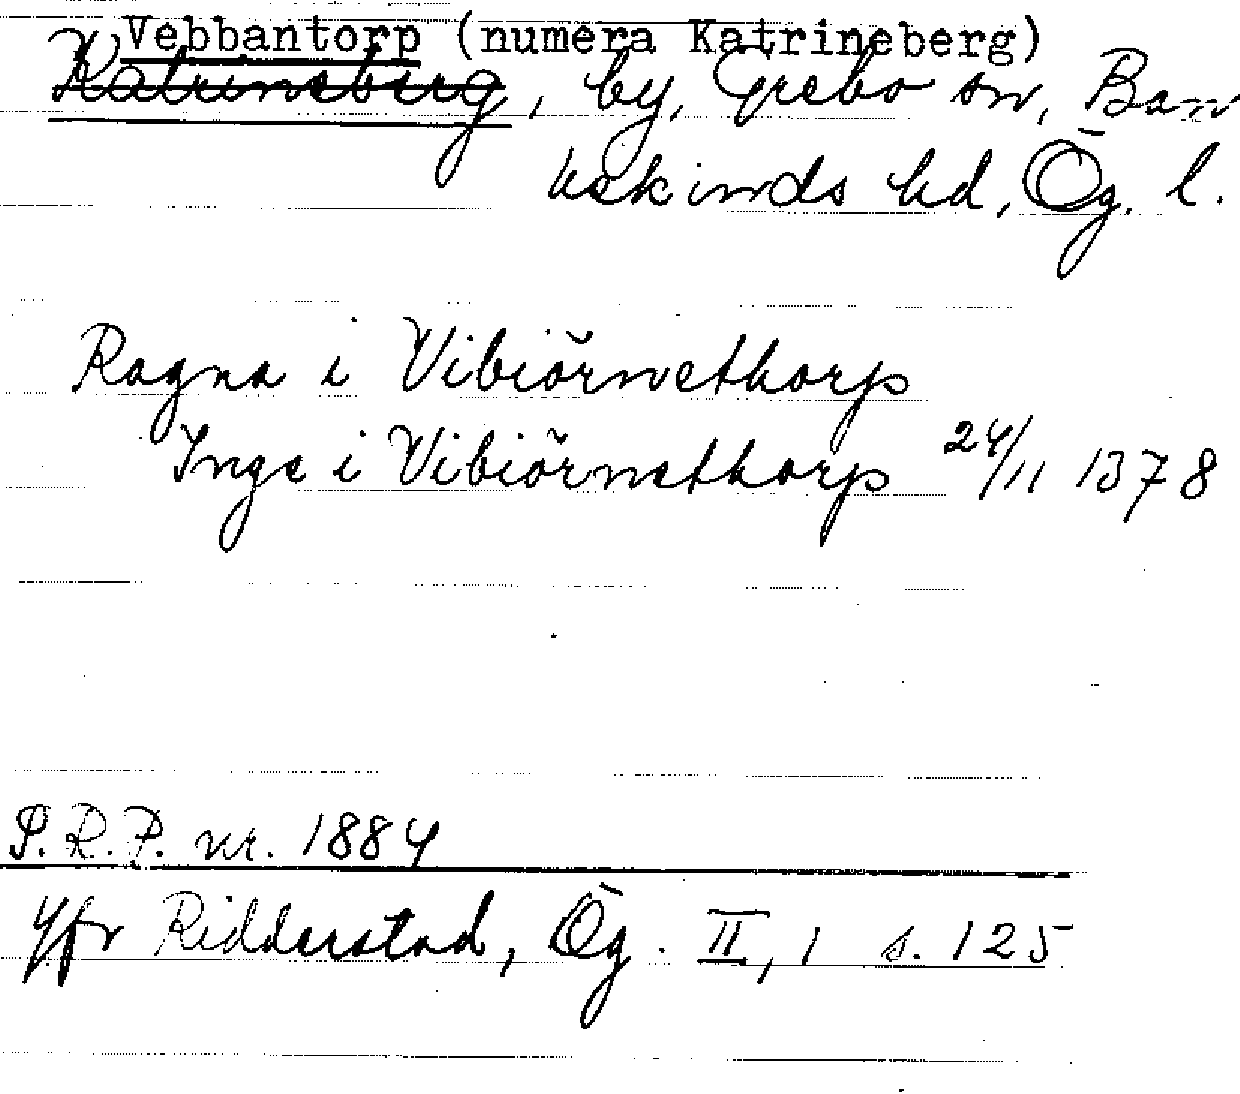 Vebbantorp (numera Katrineberg)
Katrineberg, by, Grebo sn, Ban
kekinds hd, Ög. l.
Ragna i Vibiörnethorp
Inge i Vibiörnethorp 24/11 1378
S.R.P. nr. 1884
Jfr Ridderstad, Ög. II, 1 s. 125